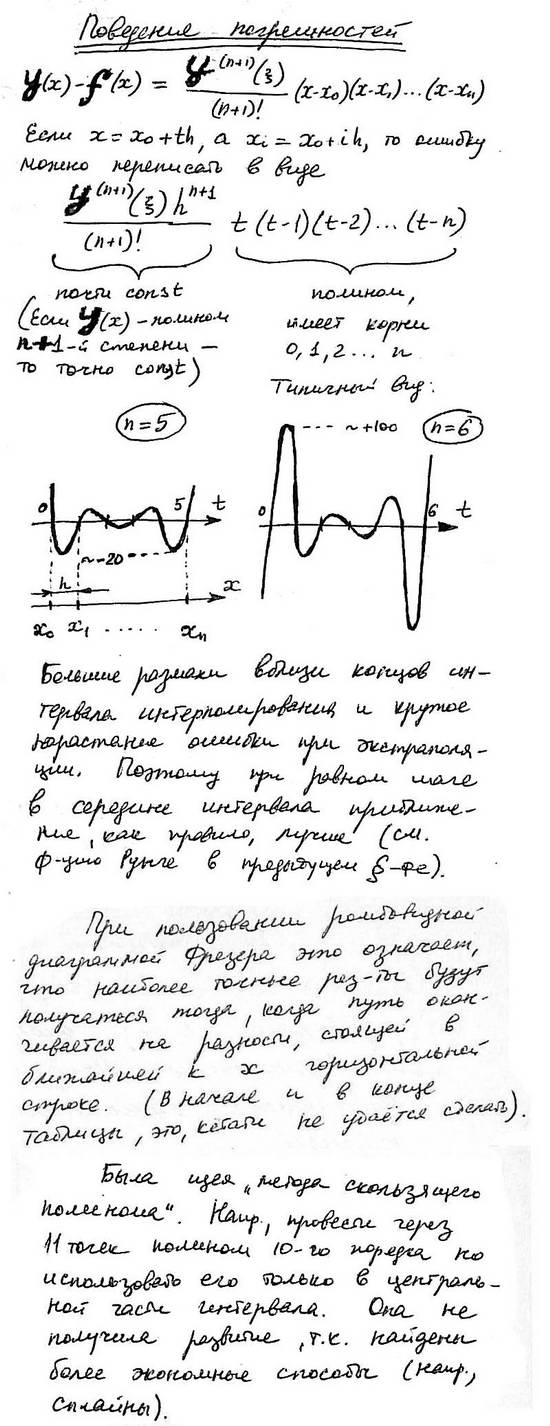 Поведение погрешностей
y(x) - f(x) = y^(n+1)(ξ) / (n+1)! (x-x₀)(x-x₁)...(x-xₙ)
Если x = x₀+th, а xᵢ = x₀+ih, то ошибку
можно переписать в виде
y^(n+1)(ξ) h^(n+1) / (n+1)! t(t-1)(t-2)...(t-n)
почти const
(Если y(x) - полином
n+1-й степени -
то точно const)
полином,
имеет корни
0, 1, 2... n
Типичный вид:
n=5
0 5 t
~-20
h
x
x₀ x₁ ..... xₙ
n=6
~+100
0 6 t
Большие размахи вблизи концов ин-
тервала интерполирования и крутое
нарастание ошибки при экстраполя-
ции. Поэтому при равном шаге
в середине интервала приближе-
ние, как правило, лучше (см.
ф-цию Рунге в предыдущем §-фе).
При пользовании ромбовидной
диаграммой Фрезера это означает,
что наиболее точные рез-ты будут
получаться тогда, когда путь окан-
чивается на разности, стоящей в
ближайшей к x горизонтальной
строке. (В начале и в конце
таблицы, это, кстати не удаётся сделать).
Была идея „метода скользящего
полинома". Напр., провести через
11 точек полином 10-го порядка но
использовать его только в централь-
ной части интервала. Она не
получила развитие, т.к. найдены
более экономные способы (напр.,
сплайны).